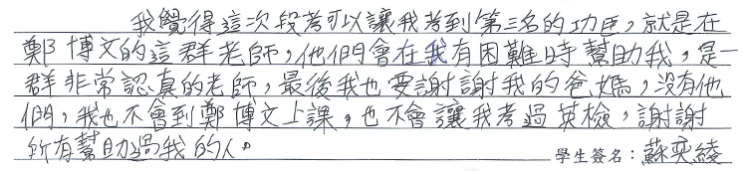 我覺得這次段考可以讓我考到第三名的功臣，就是在
鄭博文的這群老師，他們會在我有困難時幫助我，是一
群非常認真的老師，最後我也要謝謝我的爸媽，沒有他
們，我也不會到鄭博文上課，也不會讓我考過英檢，謝謝
所有幫助過我的人。
學生簽名：蘇奕綾